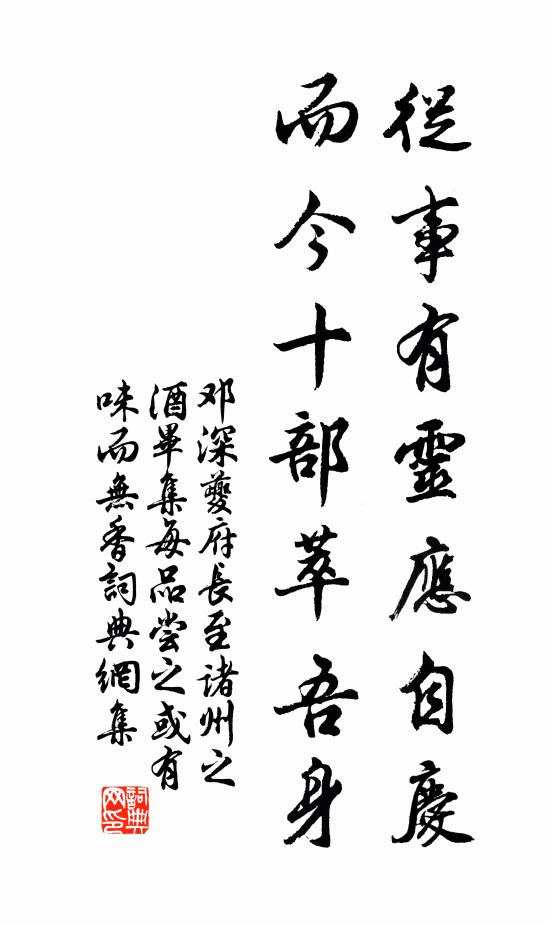 從事有靈應自慶
而今十部萃吾身
邓深夔府長至诸州之
酒畢集每品尝之或有
味而無香詞典網集
詞典网印